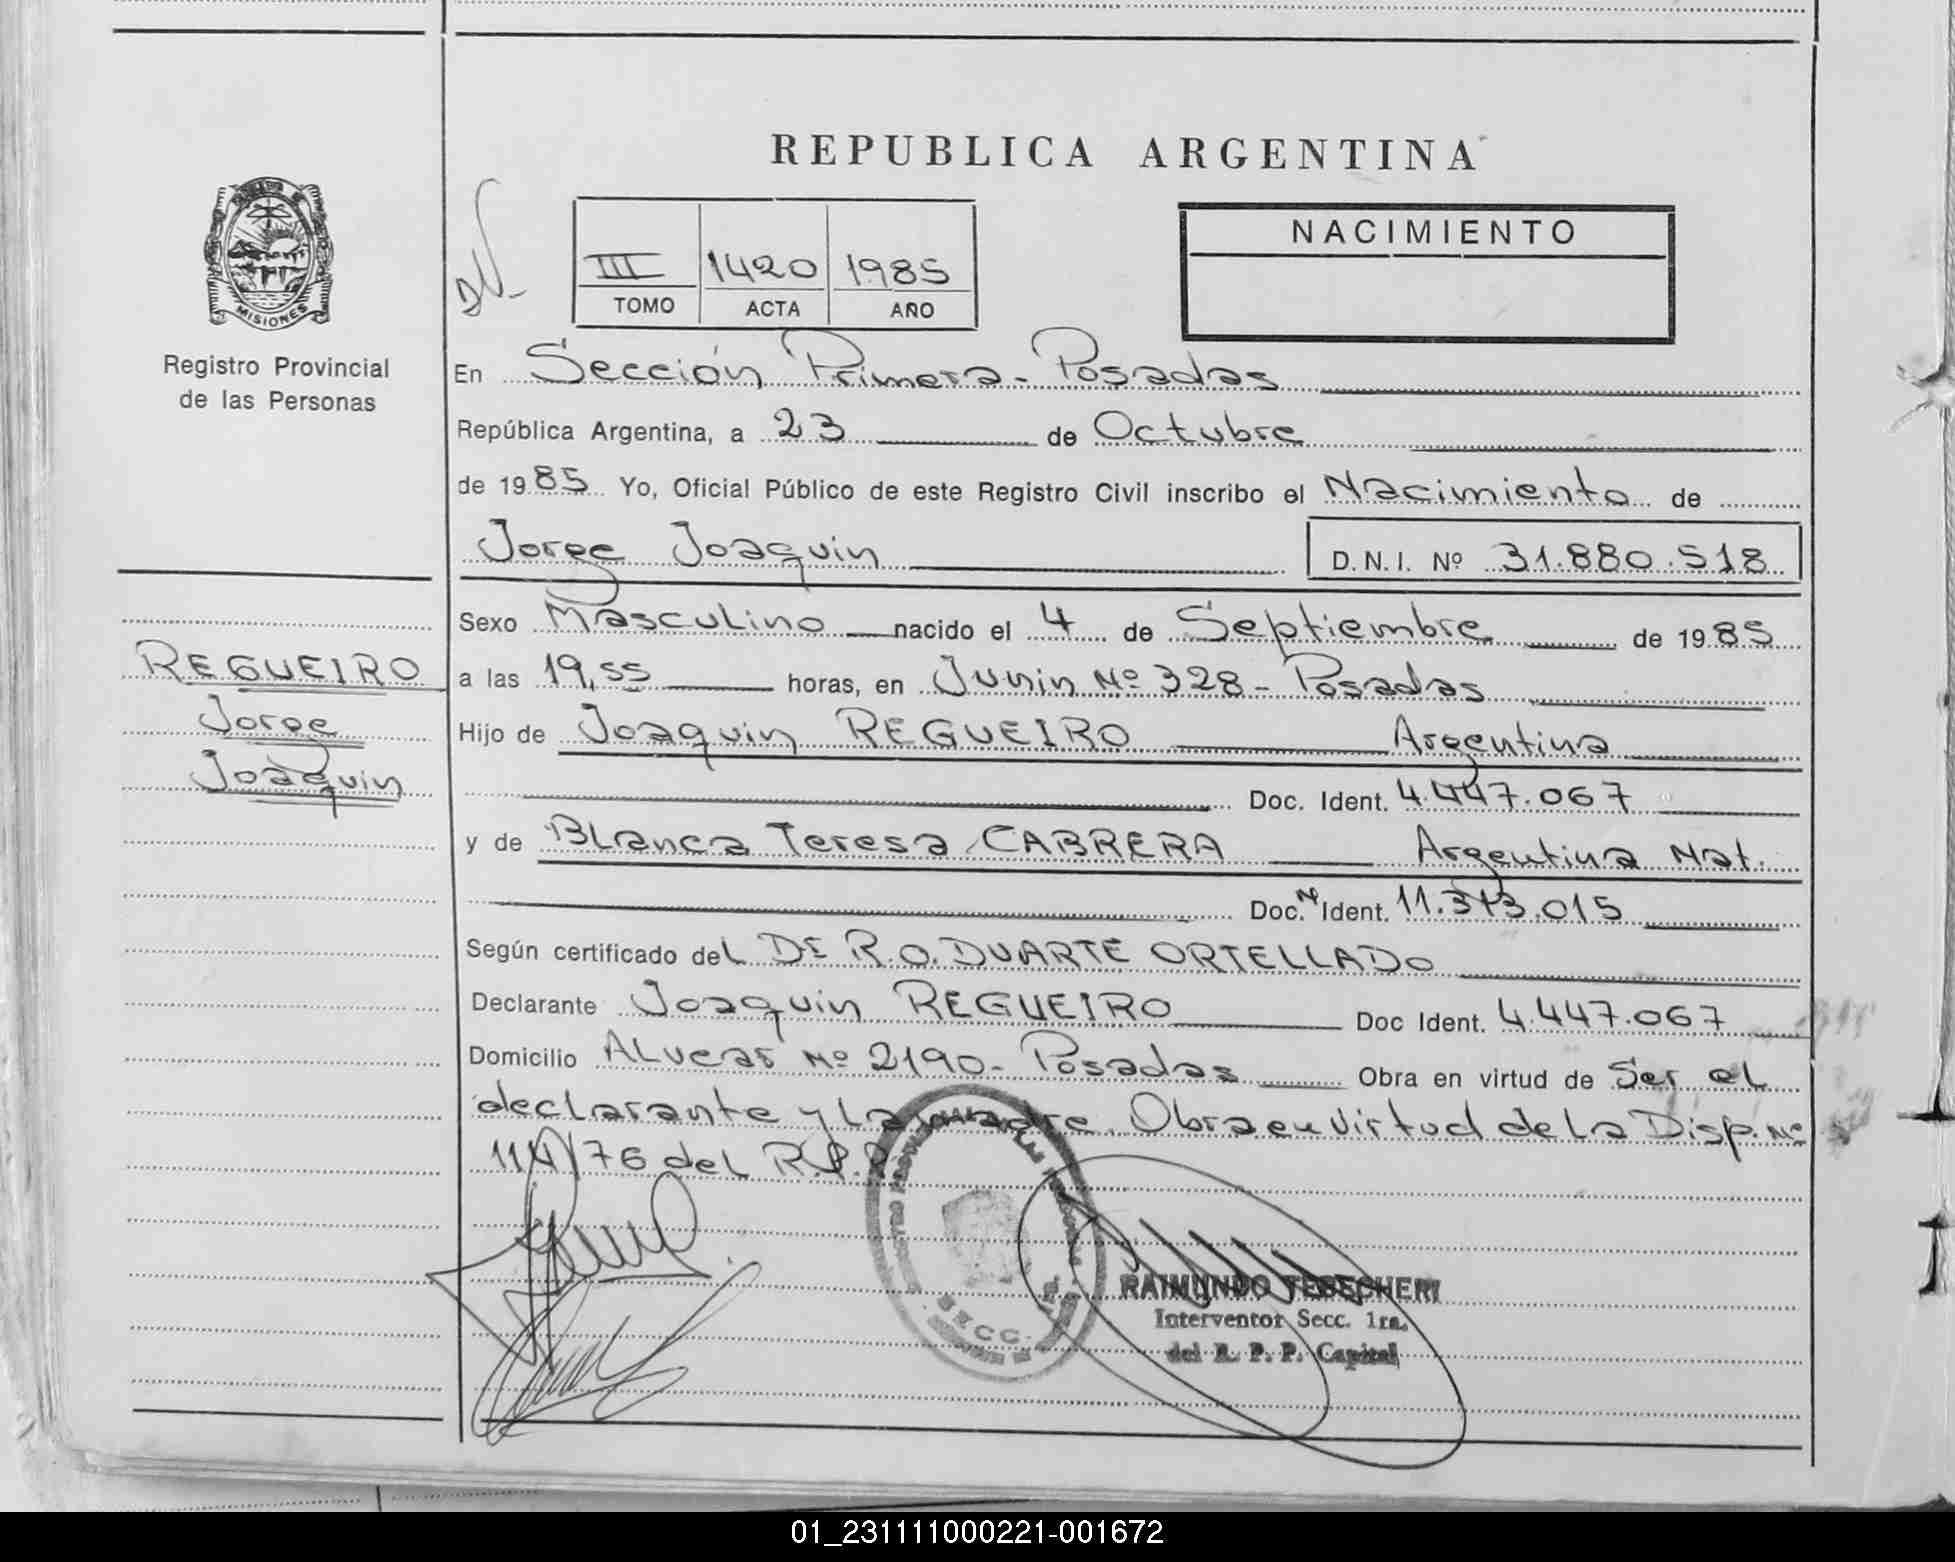 REPUBLICA ARGENTINA
MISIONES
Registro Provincial
de las Personas
III 1420 1985
TOMO ACTA AÑO
NACIMIENTO
En Sección Primera - Posadas
República Argentina, a 23 de Octubre
de 1985 Yo, Oficial Público de este Registro Civil inscribo el Nacimiento de
Jorge Joaquin D.N.I. Nº 31.880.518
REGUEIRO
Jorge
Joaquin
Sexo Masculino nacido el 4 de Septiembre de 1985
a las 19,55 horas, en Junin Nº 328 - Posadas
Hijo de Joaquin REGUEIRO Argentina
Doc. Ident. 4.447.067
y de Blanca Teresa CABRERA Argentina Nat.
Doc. Ident. 11.373.015
Según certificado del Dr R.O. DUARTE ORTELLADO
Declarante Joaquin REGUEIRO Doc Ident. 4.447.067
Domicilio Nº 2190 - Posadas Obra en virtud de Ser el
declarante y La madre. Obra en virtud de La Disp. Nº
/76 del R.P.P.
SECC.
RAIMUNDO
Interventor Secc. 1ra.
del R. P. P. Capital
01_231111000221-001672